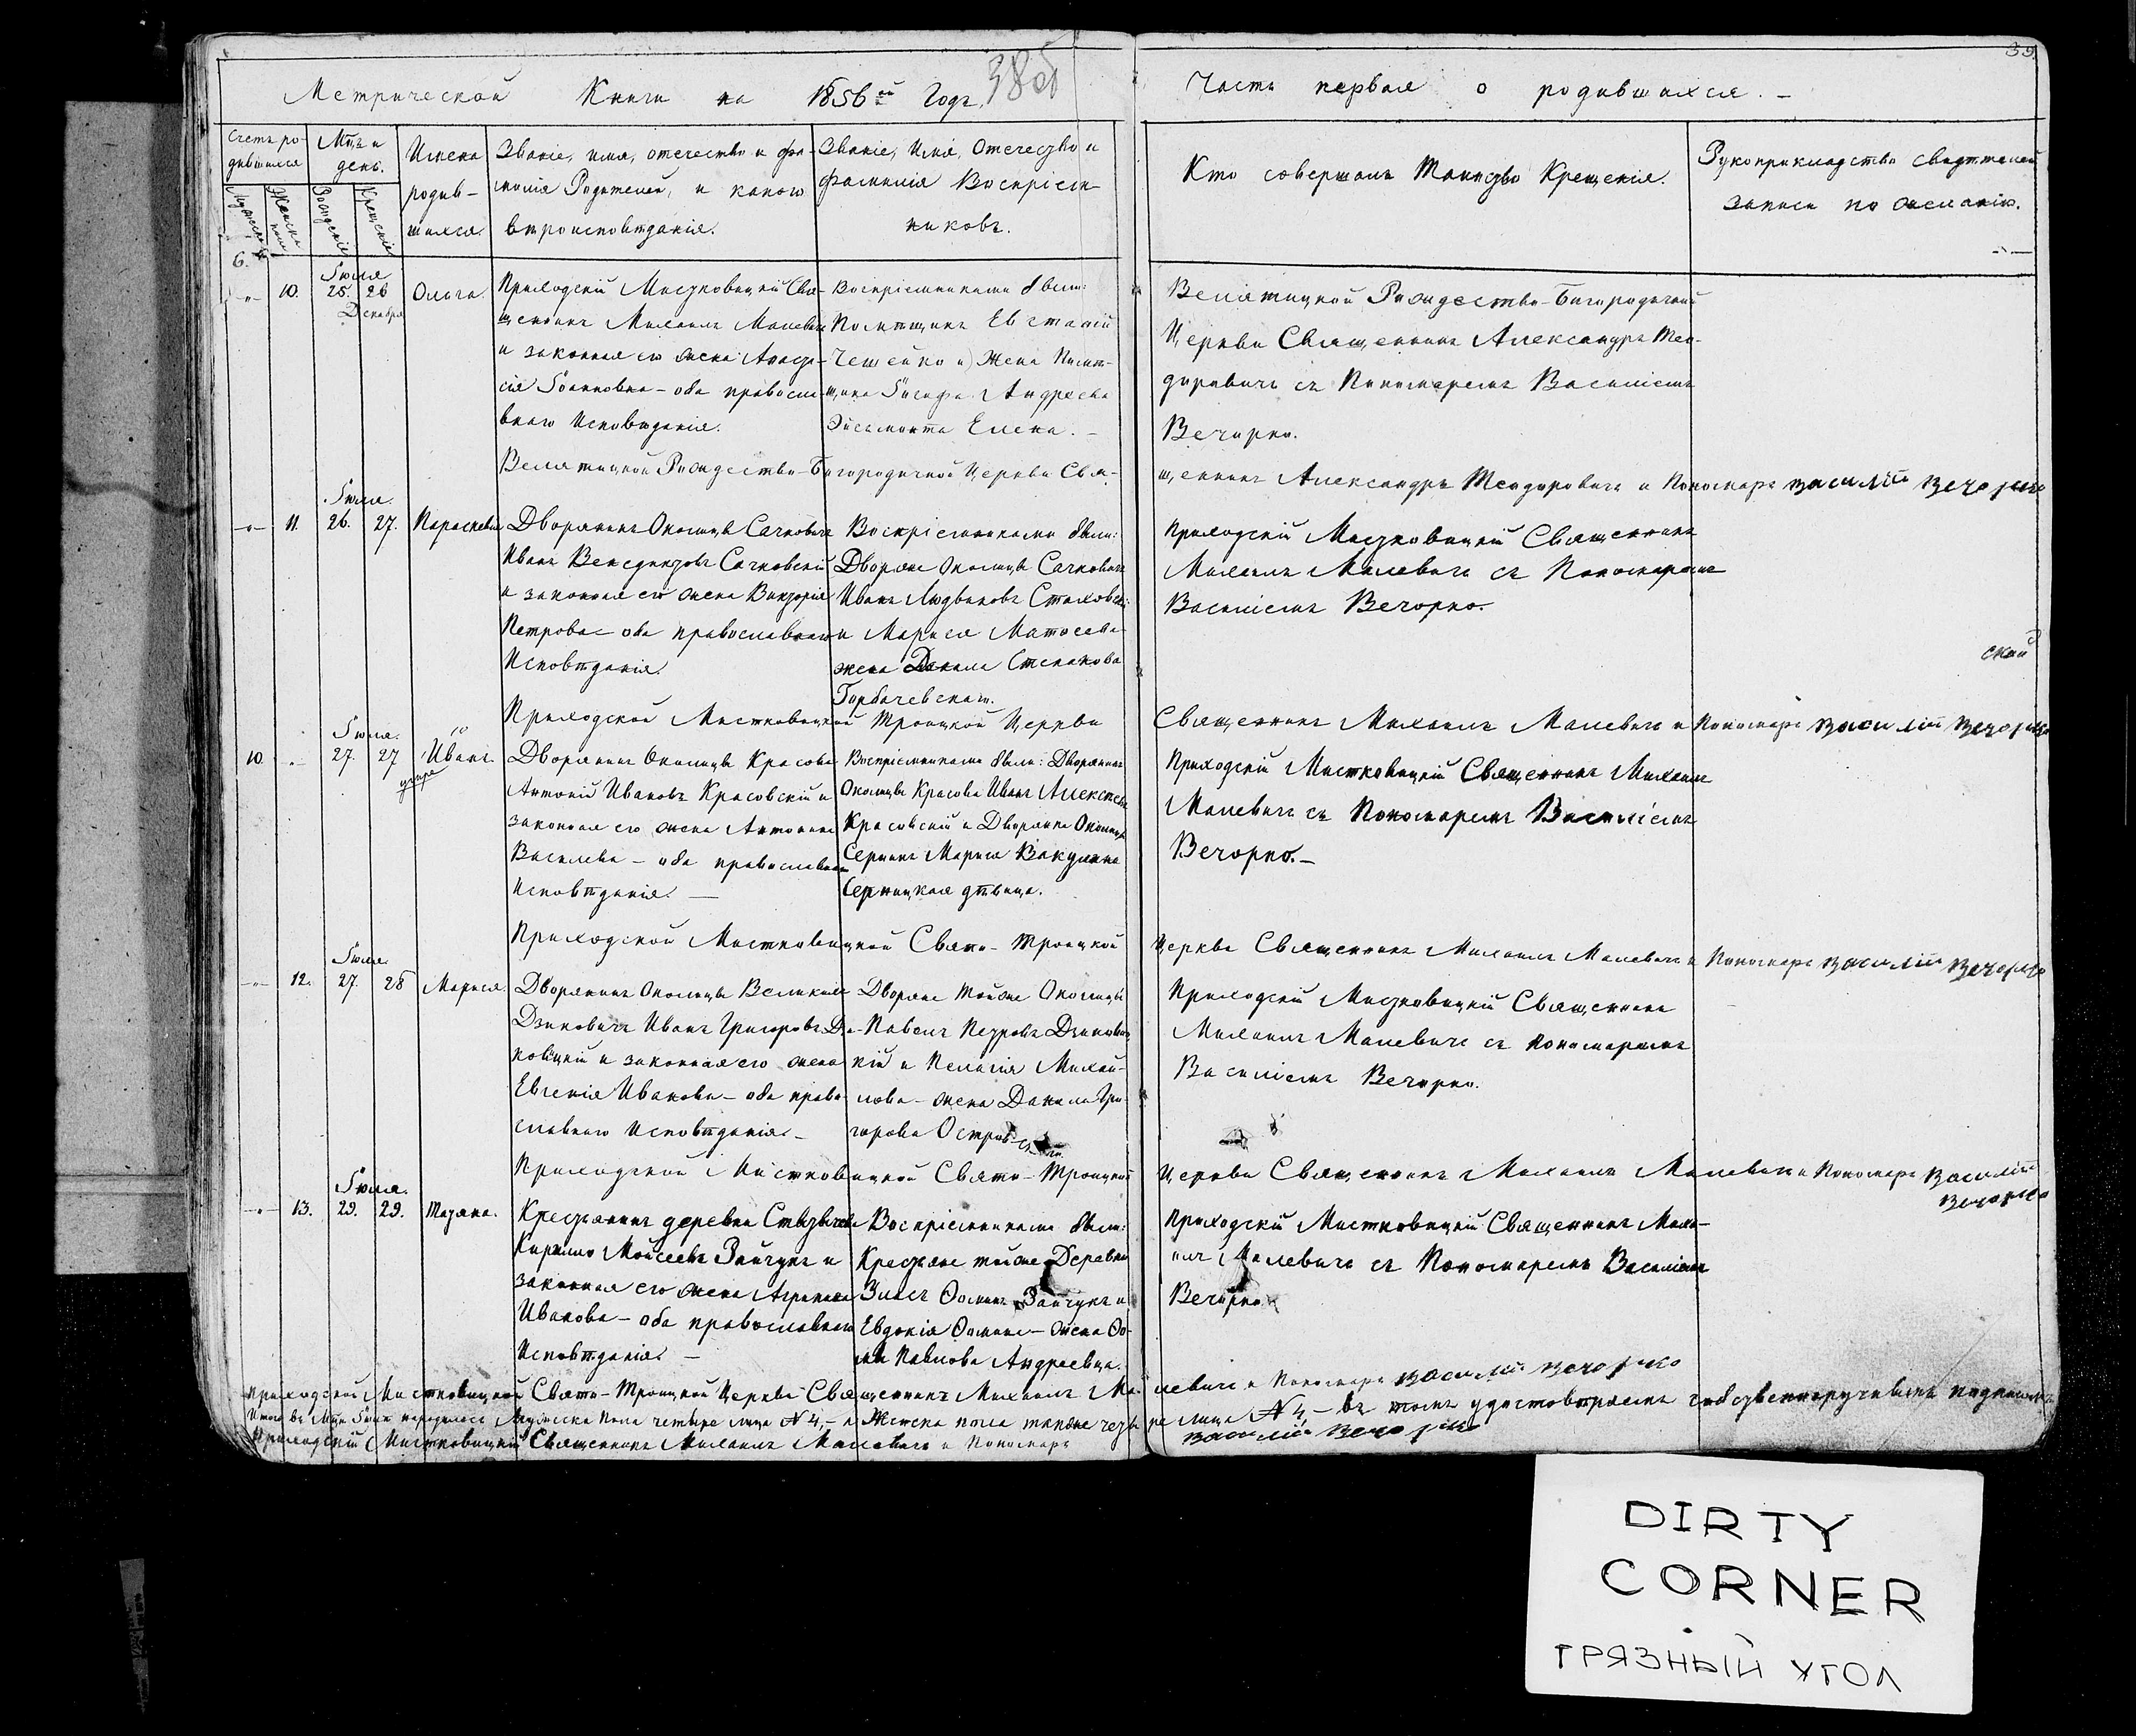 Метрической Книги на 1856й Годъ.
38об
Часть первая о родившихся. –
39
Счетъ ро-
дившихся
Мцъ и
день.
Имена
родив-
шихся.
Званіе, имя, отечество и фа-
милія Родителей, и какого
вѣроисповѣданія.
Званіе, Имя, Отечество и
Фамилія Воспріем-
никовъ.
Кто совершалъ Таинство Крещенія.
Рукоприкладство свидѣтелей
записи по желанію.
Мужеска
Женска
пола
Рожденія
Крещенія
6.
10.
Іюля
25. 26
Декабря
Ольга.
Приходскій Мистковицкій Свя-
щенникъ Михаилъ Малевичъ
и законная его жена Анаста-
сія Іоанновна – оба православ-
внаго Исповѣданія.
Воспріемниками были:
Помѣщикъ Евстафій
Чешейко и Жена Помѣ-
щика Іосифа Андреева
Эйсмонта Елена. –
Велятицкой Рождество-Богородичной
Церкви Священникъ Александръ Тео-
доровичъ съ Пономаремъ Василіемъ
Вечорко.
Велятицкой Рождество-Богородичной Церкви Свя-
щенникъ Александръ Теодоровичъ и Пономарь Василій Вечорко
11.
Іюля.
26. 27.
Параскева
Дворянинъ Околицы Сачковичъ
Иванъ Венедиктовъ Сачковскій
и законная его жена Викторія
Петрова – оба православнаго
Исповѣданія.
Воспріемниками были:
Дворяне Околицы Сачковичъ
Иванъ Людвиковъ Стаховскі
и Марися Матѳеева
жена Данила Степанова
Горбачевскаго.
Приходскій Мистковицкій Священникъ
Михаилъ Малевичъ съ Пономаремъ
Василіемъ Вечорко.
ской
Приходской Мистковицкой Троицкой Церкви
Священникъ Михаилъ Малевичъ и Пономарь Василій Вечорко
10.
Іюля.
27. 27
10
Иванъ
умре
Дворянинъ Околицы Красова
Антоній Ивановъ Красовскій и
законная его жена Антонина
Васильева – оба православнаго
Исповѣданія. —
Воспріемниками были: Дворянинъ
Околицы Красова Иванъ Алексѣевъ
Красовскій и Дворянка Околицы
Серникъ Марися Викулина
Серницкая дѣвица.
Приходскій Мистковицкій Священникъ Михаилъ
Малевичъ съ Пономаремъ Василіемъ
Вечорко. –
Приходской Мистковицкой Свято-Троицкой
Церкви Священникъ Михаилъ Малевичъ и Пономарь Василій Вечорко
12.
Іюля.
27. 28
Марися.
Дворянинъ Околицы Великихъ
Дзиковичъ Иванъ Григоровъ Дзи-
ковицкій и законная его жена
Евгенія Иванова – оба право-
славнаго Исповѣданія. –
Дворяне тойже Околицы
Павелъ Петровъ Дзиковиц-
кій и Пелагія Михай-
лова – жена Данила Гри-
горова Островскаго.
Приходскій Мистковицкій Священникъ
Михаилъ Малевичъ съ Пономаремъ
Василіемъ Вечорко.
Приходской Мистковицкой Свято-Троицкой
Церкви Священникъ Михаилъ Малевичъ и Пономарь Василій
Вечорко
13.
Іюля.
29. 29.
Татяна.
Крестьянинъ деревни
Кирилло Мойсеевъ Зайчукъ и
законная его жена Агрипина
Иванова – оба православнаго
Исповѣданія. —
Воспріемниками были:
Крестьяне тойже Деревни
Ѳоминъ Зайчукъ и
Евдокія Ѳомина – жена Ѳо-
мы Павлова Андреевца.
Приходскій Мистковицкій Священникъ Миха-
илъ Малевичъ съ Пономаремъ Василіемъ
Вечорко.
Приходской Мистковицкой Свято-Троицкой Церкви Священникъ Михаилъ Малевичъ и Пономарь Василій Вечорко
Итого въ Мцѣ Іюлѣ народилось Мужеска Пола четыре лица N4, – а Женска пола также четыре лица N4, – въ томъ удостовѣряемъ собственноручнымъ подписомъ
Приходскій Мистковицкій Священникъ Михаилъ Малевичъ и Пономарь Василій Вечорко
DIRTY
CORNER
ГРЯЗНЫЙ УГОЛ